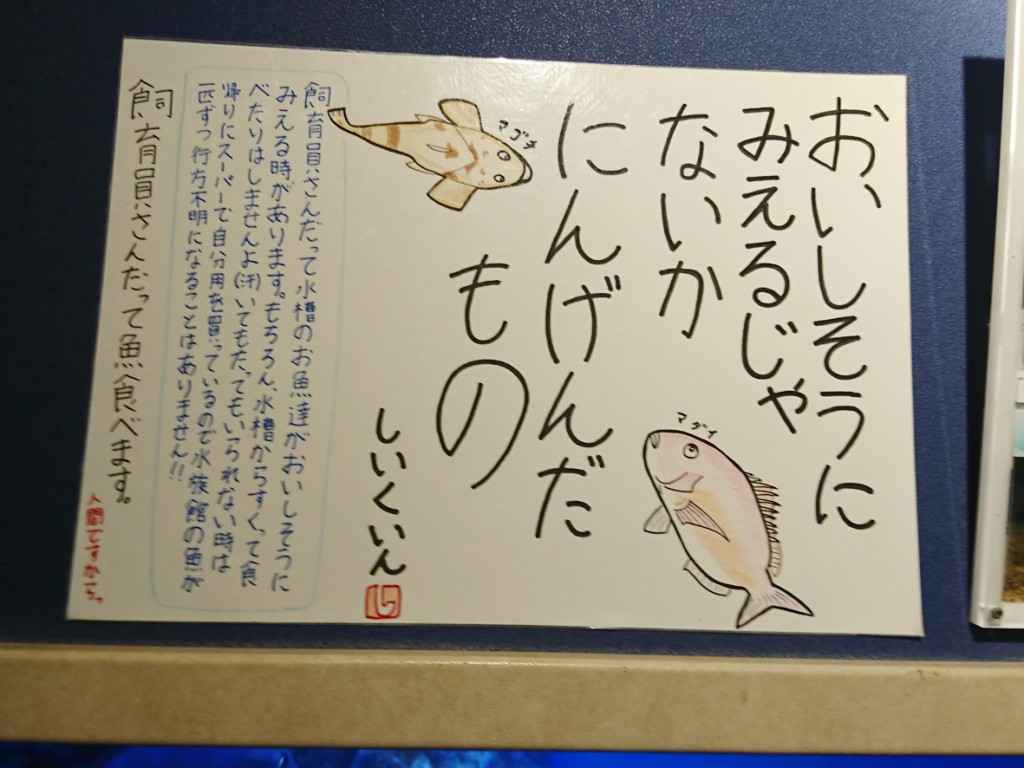 おいしそうに
みえるじゃ
ないか
にんげんだ
もの
しいくいん
し
マゴチ
マダイ
飼育員さんだって水槽のお魚達がおいしそうに
みえる時があります。もちろん、水槽からすくって食
べたりはしませんよ(汗)いてもたってもいられない時は
帰りにスーパーで自分用を買っているので水族館の魚が
一匹ずつ行方不明になることはありません!!
飼育員さんだって魚食べます。
人間ですから。